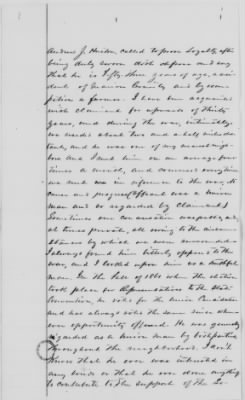 Andrew J. Heiden, called to prove Loyalty, after
being duly sworn doth depose and say
that he is fifty three years of age, a resi-
dent of County, and by occu-
pation a farmer. I have been acquainted
with claimant for upwards of thirty
years, and during the war, intimately.
we reside about two and a half miles dis-
tant, and he was one of my nearest neigh-
bors and I met him on an average four
times a month, and conversed every time
we met was in reference to the war, its
causes and progress (affiant was a Union
man and so regarded by claimant.)
Sometimes our conversation was public, and
at times private, all owing to the circum-
stances by which we were surrounded
I always found him bitterly opposed to the
war, and I looked upon him as a truthful
man. In the fall of 1860 when the election
took place for Representatives to the State
Convention, he voted for the Union Candidates
and has always voted the same since when-
ever opportunity offered. He was generally
regarded as a Union man by both parties
throughout the neighborhood. I don't
know that he ever was interested in
any way or that he ever done anything
to contribute to the support of the So-